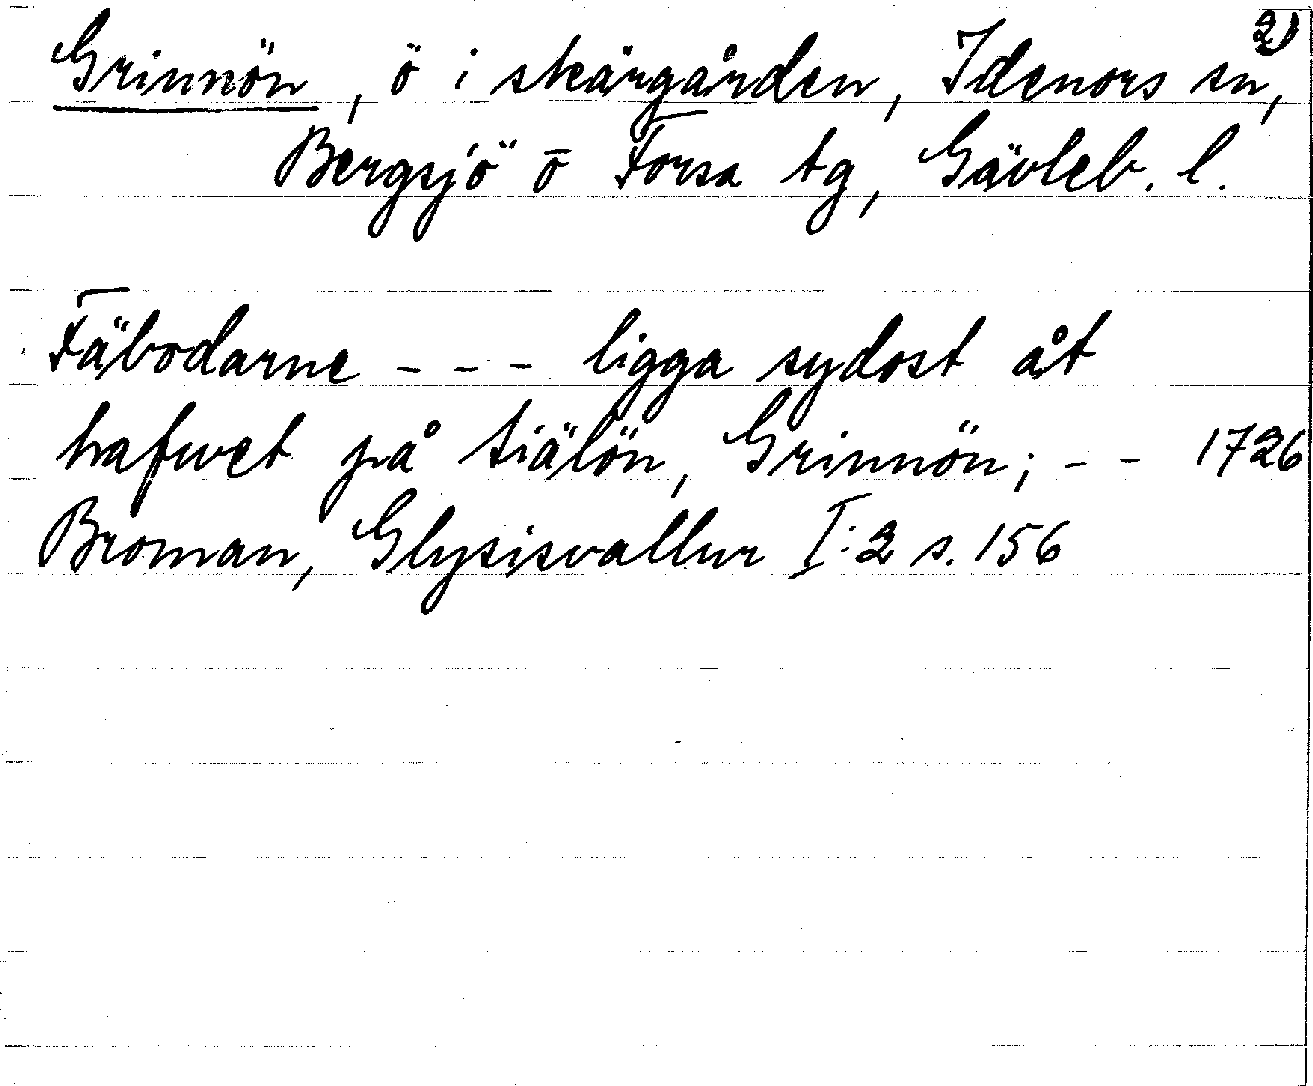 2)
Grinnön, ö i skärgården, Idenors sn,
Bergsjö o Forsa tg, Gävleb. l.
Fäbodarne - - - ligga sydost åt
hafwet på tiälön, Grinnön; - - 1726
Broman, Glysisvallur I:2 s. 156